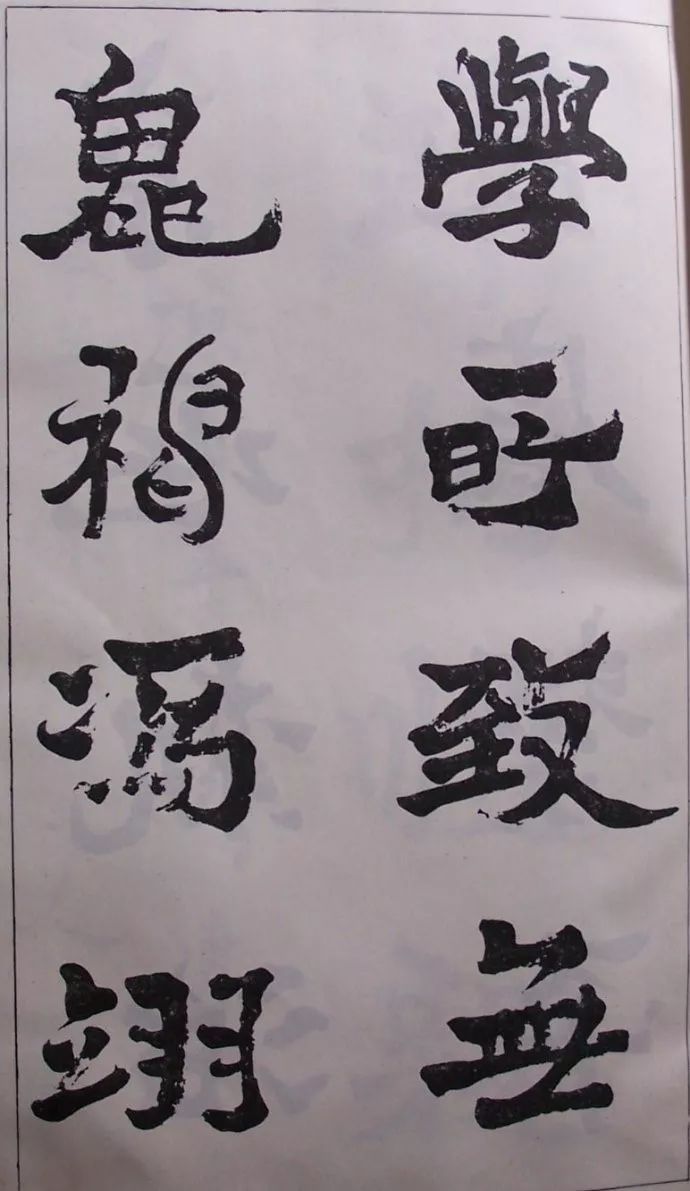 學所致無
鬼禍馮翊